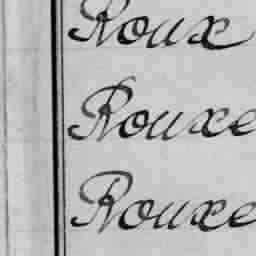 Roux
Rouxe
Rouxe